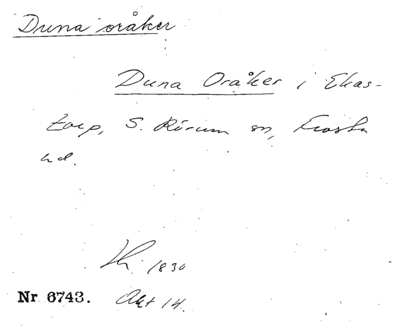 Duna oråker
Duna Oråker i Ekas-
torp, S. Rörum sn, Frosta
hd.
1830
Nr 6743. Akt 14.